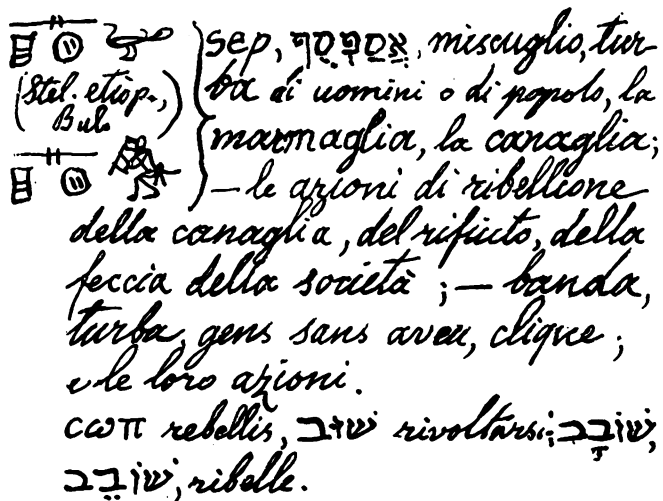 sep, אֲסַפְסֻף, miscuglio, tur-
(Stel. etiop., Bulo)
ba di uomini o di popolo, la
marmaglia, la canaglia;
— le azioni di ribellione
della canaglia, del rifiuto, della
feccia della società ; — banda,
turba, gens sans aveu, clique ;
e le loro azioni.
ⲥⲱⲡ rebellis, שׁוּב rivoltarsi; שׁוֹבָב,
שׁוֹבֵב, ribelle.